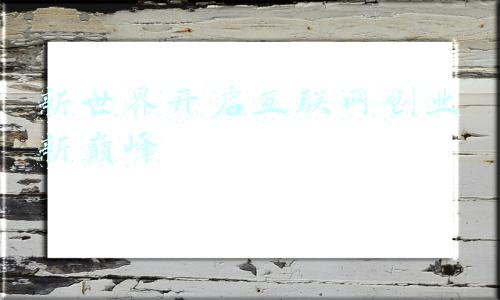 新世界开启互联网创业
新巅峰